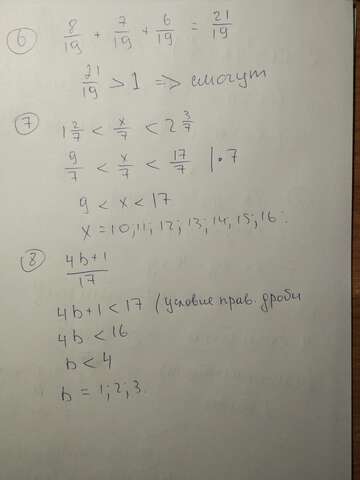 6
8/19 + 7/19 + 6/19 = 21/19
21/19 > 1 => смогут
7
1 2/7 < x/7 < 2 3/7
9/7 < x/7 < 17/7 | • 7
9 < x < 17
x = 10; 11; 12; 13; 14, 15; 16.
8
4b+1/17
4b+1 < 17 (условие прав. дроби
4b < 16
b < 4
b = 1; 2; 3.